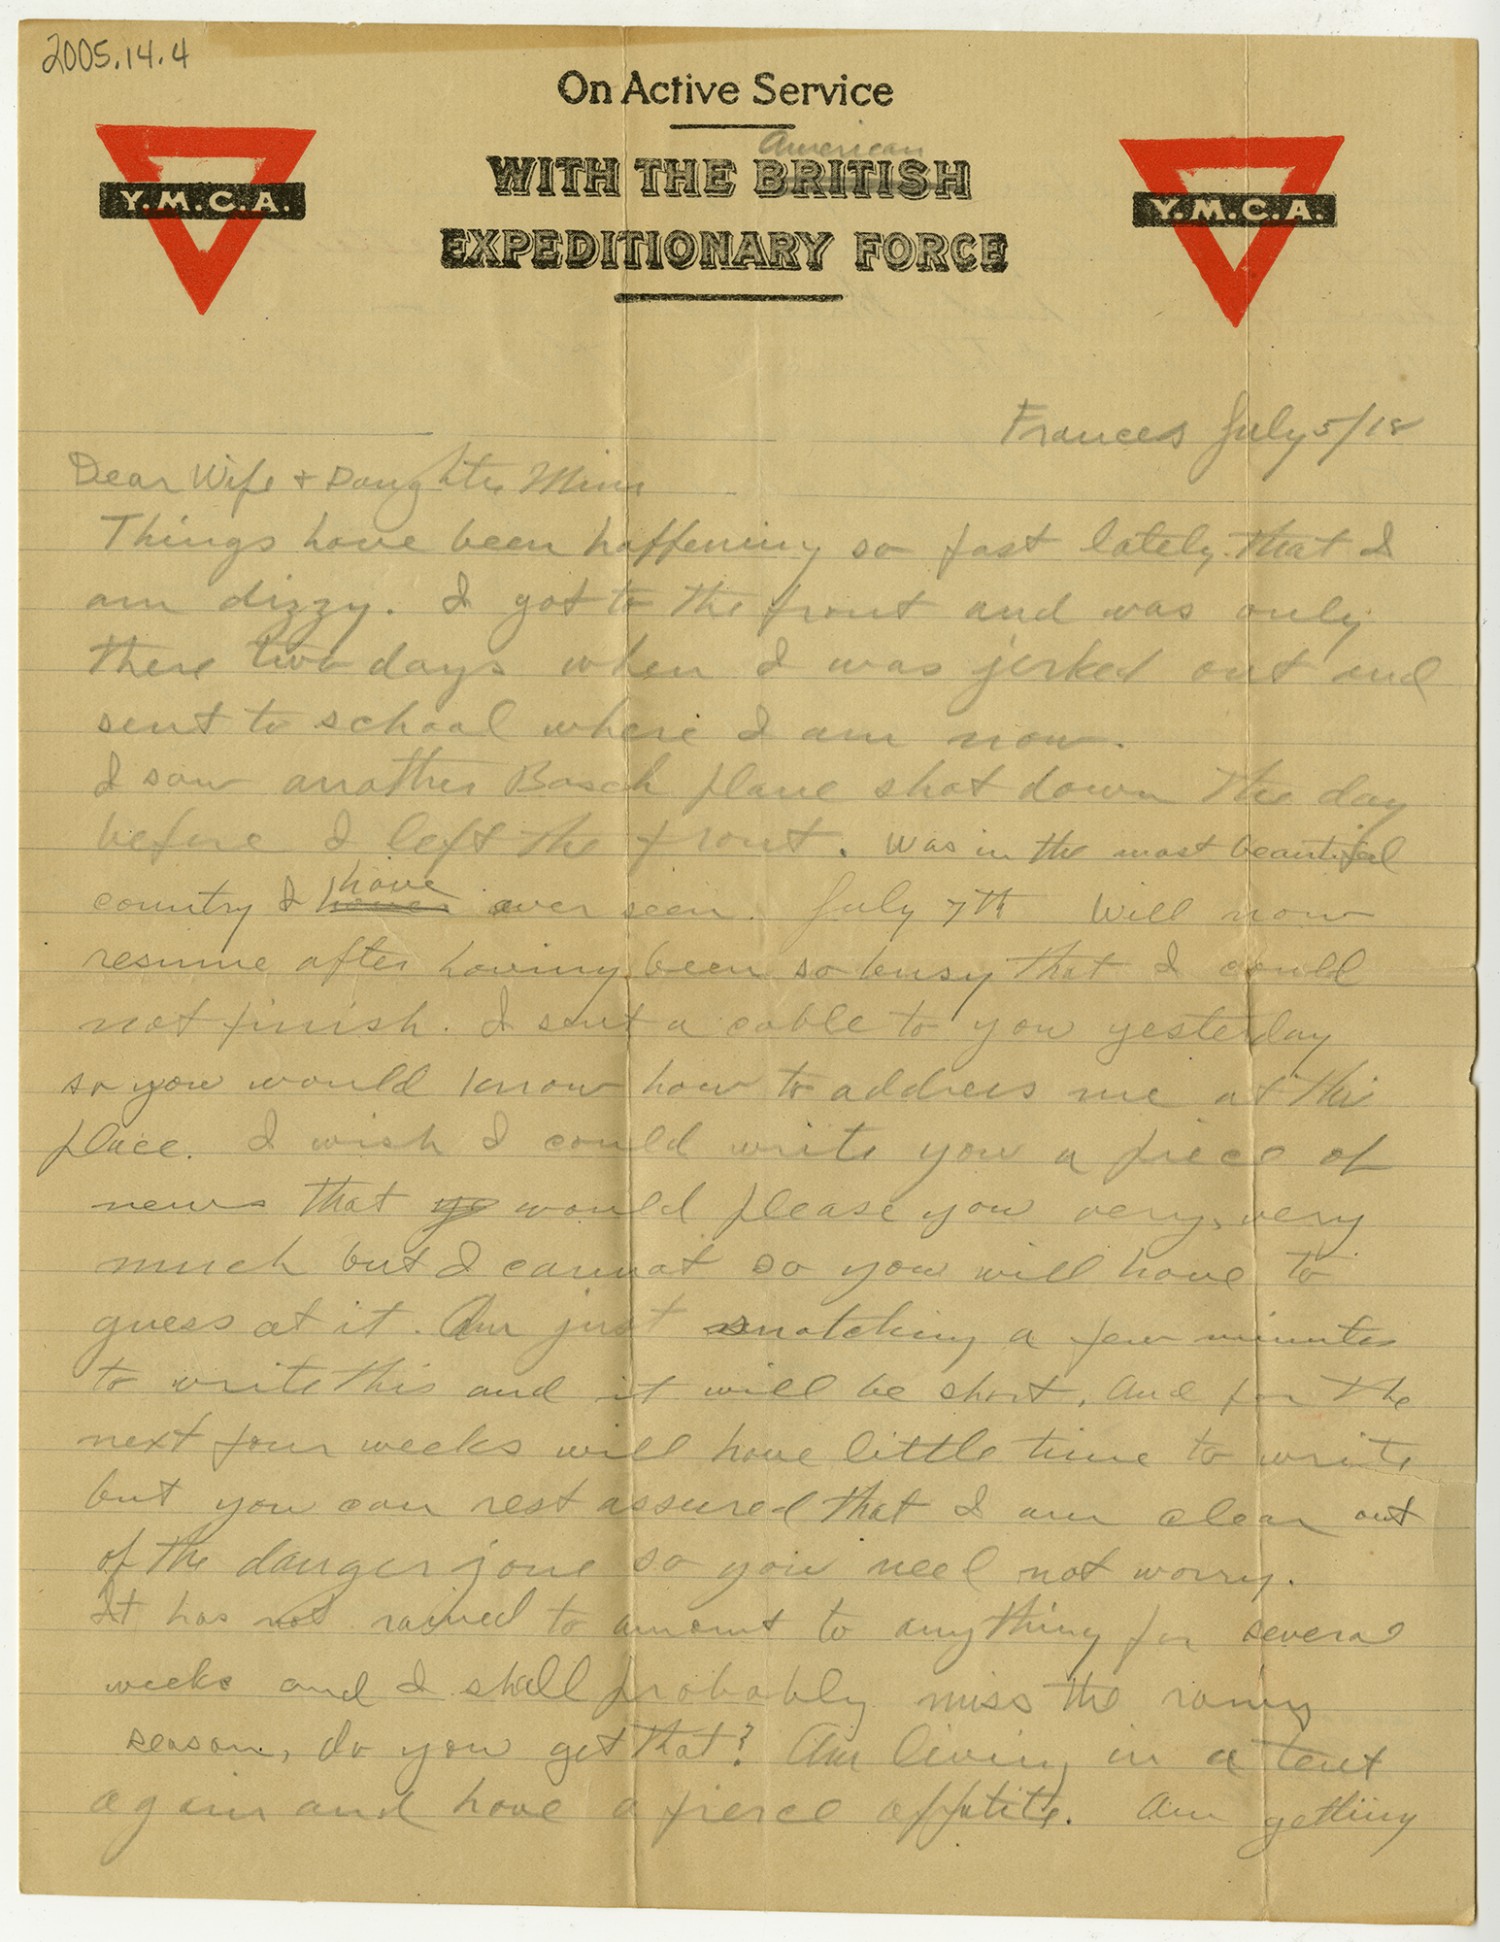 2005.14.4
On Active Service
American
WITH THE BRITISH
EXPEDITIONARY FORCE
Y.M.C.A.
Y.M.C.A.
Frances July 5/18
Dear Wife + Daughter Mina
Things have been happening so fast lately that I
am dizzy. I got to the front and was only
there two days when I was jerked out and
sent to school where I am now.
I saw another Bosch plane shot down the day
before I left the front. Was in the most beautiful
country I have ever seen. July 7th Will now
resume after having been so busy that I could
not finish. I sent a cable to you yesterday
so you would know how to address me at this
place. I wish I could write you a piece of
news that yo would please you very, very
much but I cannot so you will have to
guess at it. Am just snatching a few minutes
to write this and it will be short. And for the
next four weeks will have little time to write
but you can rest assured that I am clear out
of the danger zone so you need not worry.
It has not rained to amount to anything for several
weeks and I shall probably miss the rainy
season, do you get that? Am living in a tent
again and have a fierce appetite. Am getting